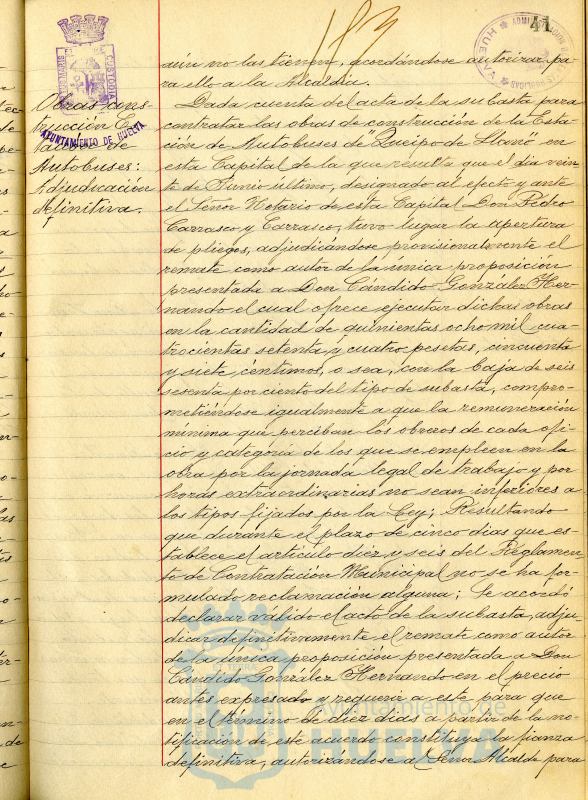 183
41
aún no las tienen, acordándose autorizar pa-
ra ello a la Alcaldía.
Obras cons-
trucción Es-
tación de
Autobuses:
Adjudicación
definitiva.
AYUNTAMIENTO DE HUELVA
CUSTODIA
HUELVA
Dada cuenta del acta de la subasta para
contratar las obras de construcción de la Esta-
ción de Autobuses de "Queipo de Llano" en
esta Capital de la que resulta que el día vein-
te de Junio último, designado al efecto y ante
el Señor Notario de esta Capital Don Pedro
Carrasco y Carrasco, tuvo lugar la apertura
de pliegos, adjudicándose provisionalmente el
remate como autor de la única proposición
presentada a Don Cándido González Her-
nando el cual ofrece ejecutar dichas obras
en la cantidad de quinientas ocho mil cua-
trocientas setenta y cuatro pesetas, cincuenta
y siete céntimos, o sea, con la baja de seis
sesenta por ciento del tipo de subasta, compro-
metiéndose igualmente a que la remuneración
mínima que perciban los obreros de cada ofi-
cio y categoría de los que se empleen en la
obra por la jornada legal de trabajo y por
horas extraordinarias no sean inferiores a
los tipos fijados por la Ley; Resultando
que durante el plazo de cinco días que es-
tablece el artículo diez y seis del Reglamen-
to de Contratación Municipal no se ha for-
mulado reclamación alguna; Se acordó
declarar válido el acto de la subasta, adju-
dicar definitivamente el remate como autor
de la única proposición presentada a Don
Cándido González Hernando en el precio
antes expresado y requerir a este para que
en el término de diez días a partir de la no-
tificación de este acuerdo constituya la fianza
definitiva, autorizándose al Señor Alcalde para
Ayuntamiento de
HUELVA